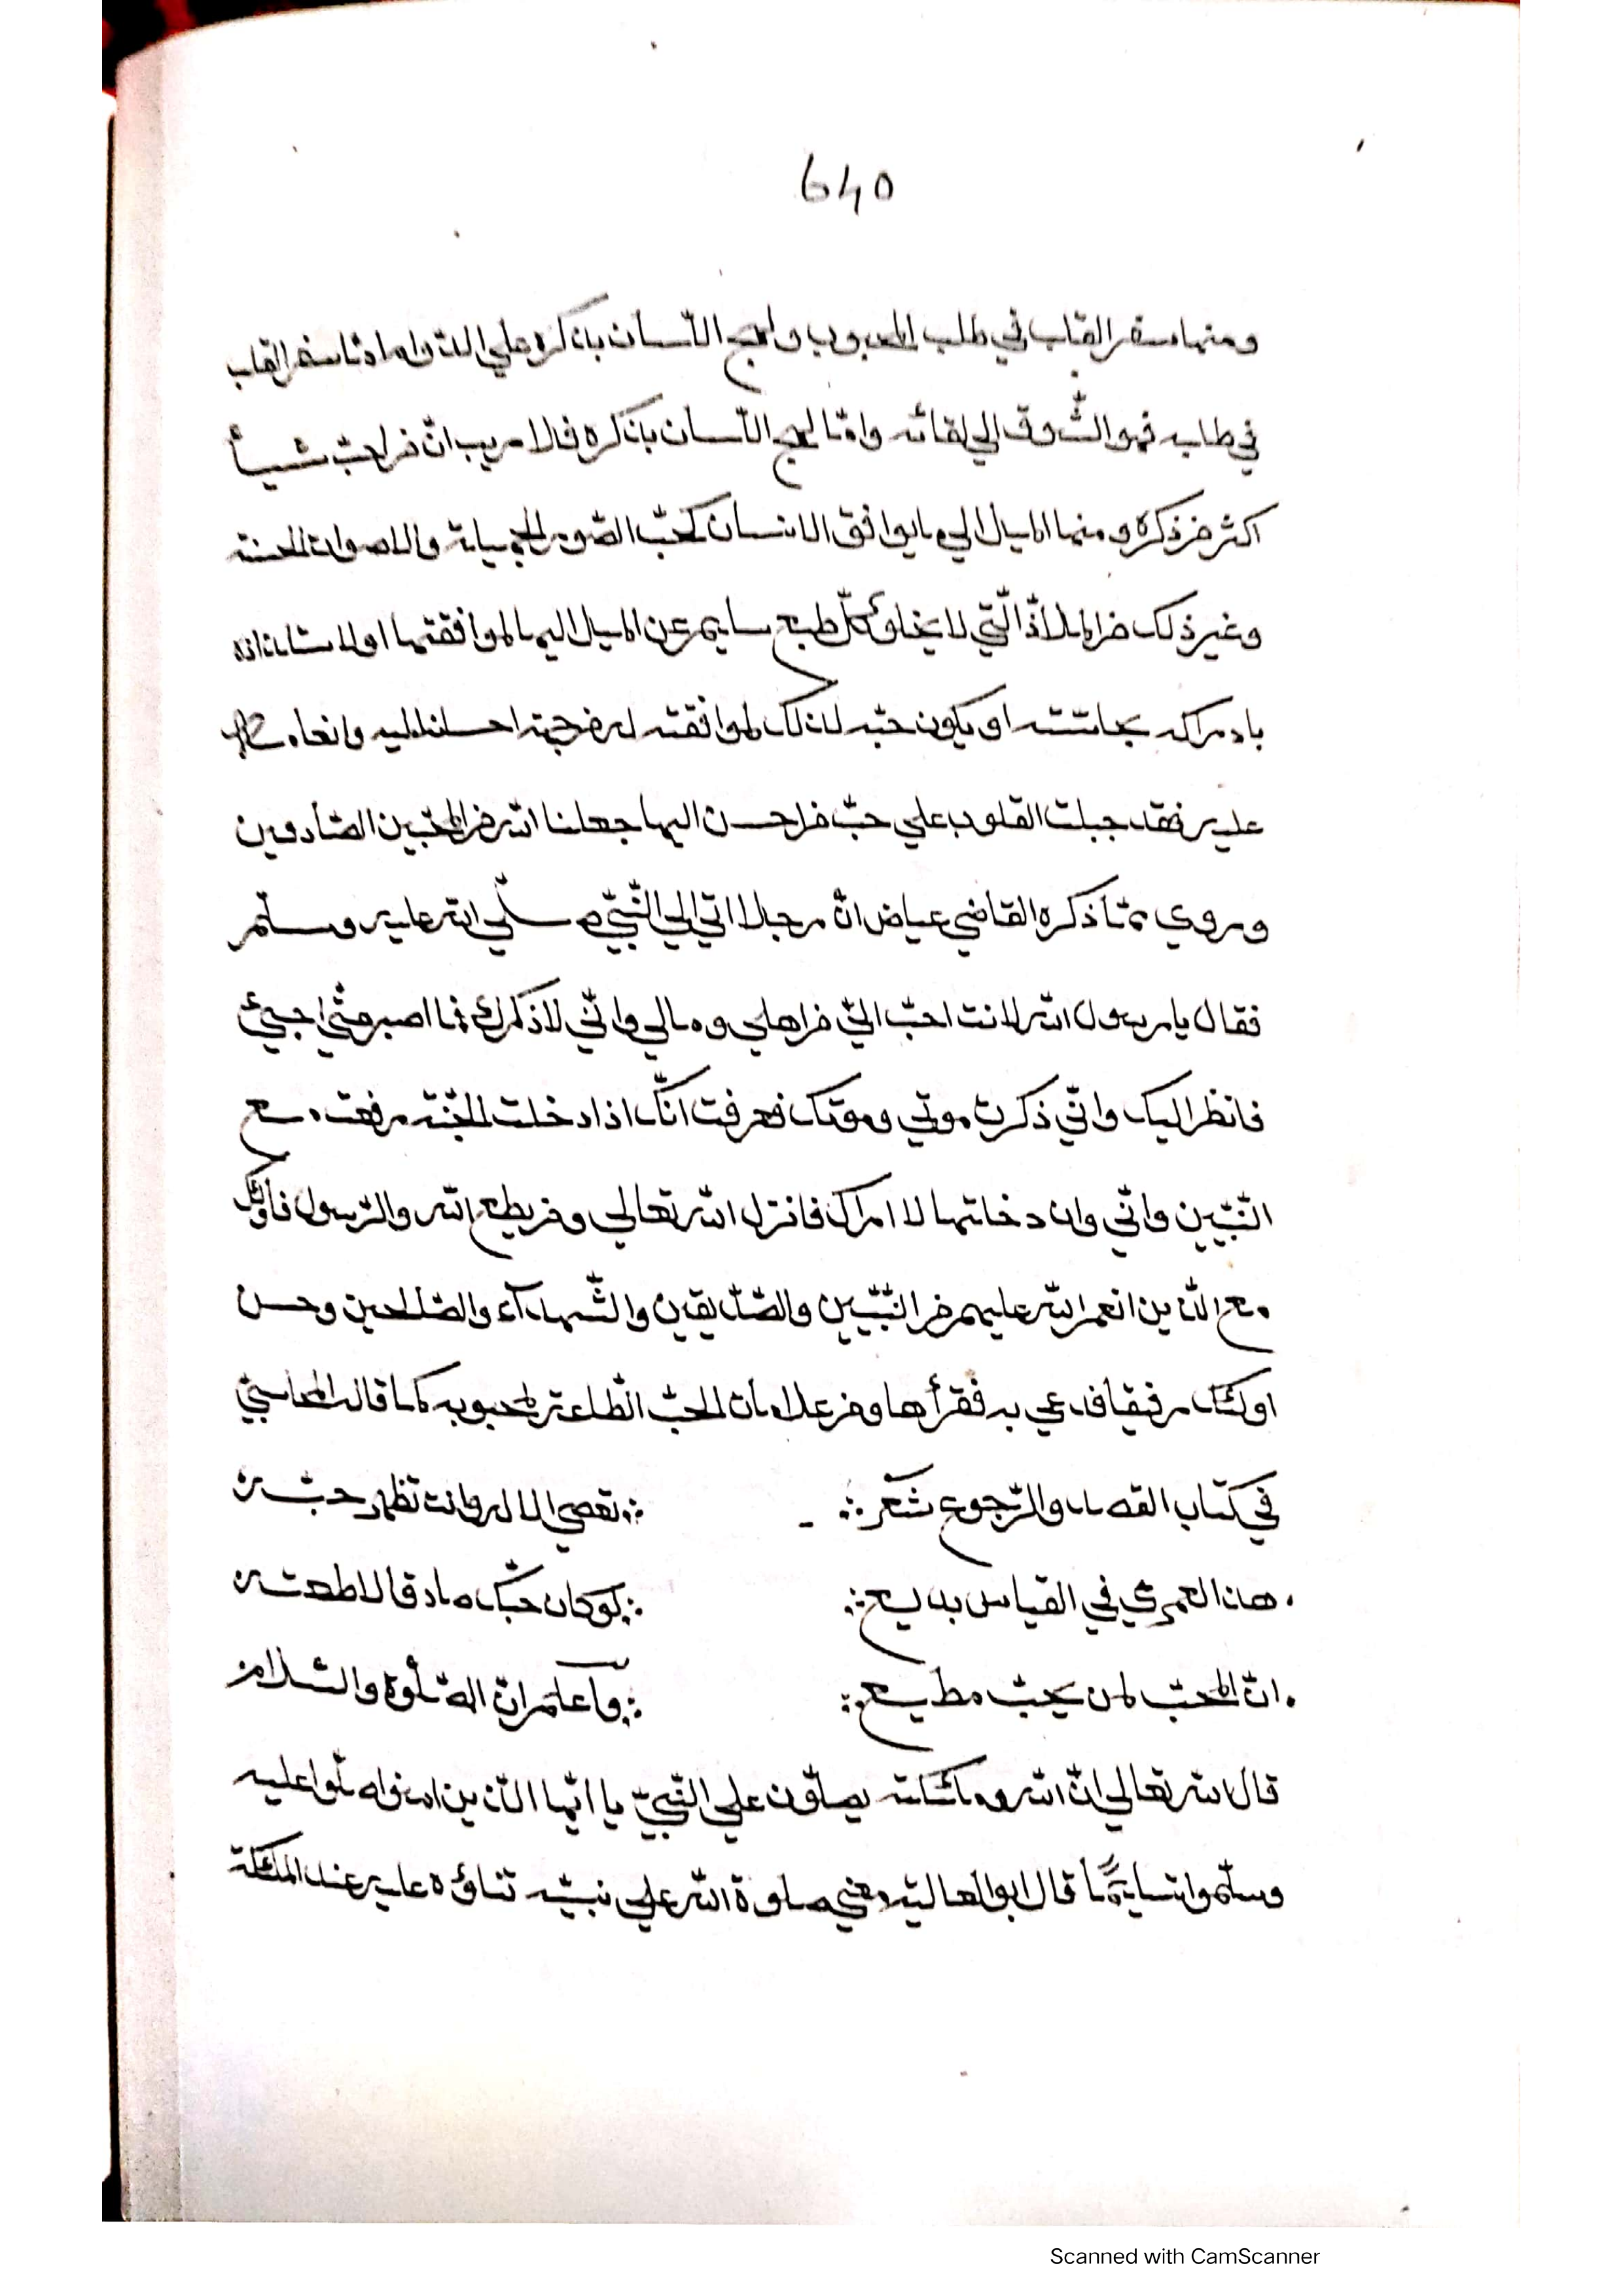 640
ومنها سفر القلب في طلب المحبوب ولهج اللّسان بذكره علي الدوام امّا سفر القلب
في طلبه فهو الشّوق الي لقائه وامّا لهج اللّسان بذكره فلا ريب انّ من احبّ شيأ
اكثر من ذكره ومنها الميل الي ما يوافق الانسان كحبّ الصّور الجميلة والاصوات الحسنة
وغير ذلك من الملاذّ الّتي لا يخلو كلّ طبع سليم عن الميل اليها لموافقتها اولاستلذاذه
بادراكه بحاسّته او يكون حبّه لذلك لموافقته له من جهة احسانه اليه وانعامه
عليه فقد جبلت القلوب علي حبّ من احسن اليها جعلنا الله من المحبّين الصّادقين
وروي ممّا ذكره القاضي عياض انّ رجلا اتي الي النّبيّ صلّي الله عليه وسلّم
فقال يا رسول الله لانت احبّ اليّ من اهلي ومالي وانّي لاذكرك فما اصبر حتّي اجيئ
فانظر اليك وانّي ذكرت موتي وموتك فعرفت انّك اذا دخلت الجنّة رفعت مع
النّبيّين وانّي وان دخلتها لا اراك فانزل الله تعالي ومن يطع الله والرّسول فاولئك
مع الّذين انعم الله عليهم من النّبيّين والصّدّيقين والشّهدآء والصّلحين وحسن
اولئك رفيقا فدعي به فقرأها ومن علامات الحبّ الطّاعة لمحبوبه كما قال المحاسبيّ
في كتاب القصد والرّجوع شعر ∴ ∴ تعصي الاله وانت تظهر حبّه
هذا لعمري في القياس بديع ∴ ∴ لو كان حبّك صادقا لاطعته
انّ المحبّ لمن يحبّ مطيع ∴ ∴ واعلم انّ الصّلوة والسّلام
قال الله تعالي انّ الله وملئكته يصلّون علي النّبيّ يا ايّها الّذين امنوا صلّوا عليه
وسلّموا تسليمًا قال ابوالعالية معني صلوة الله علي نبيّه ثناؤه عليه عند الملئكة
Scanned with CamScanner